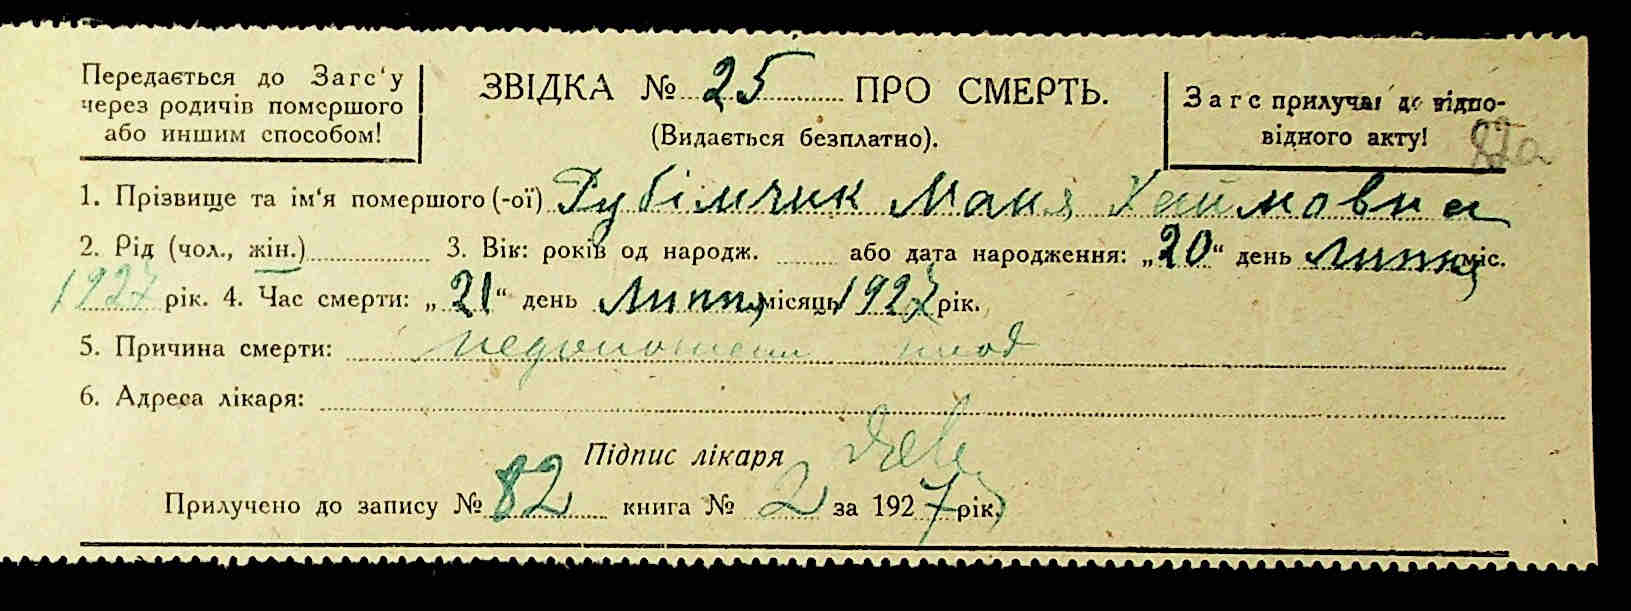 Передається до Загс‘у
через родичів помершого
або иншим способом!
ЗВІДКА № 25 ПРО СМЕРТЬ.
(Видається безплатно).
Загс прилучає до відпо-
відного акту!
82а
1. Прізвище та ім‘я помершого (-ої) Рубінчик Маня Хаймовна
2. Рід (чол., жін.) 3. Вік: років од народж. або дата народження: „20“ день липня міс.
1927 рік. 4. Час смерти: „21“ день липня місяць 1927 рік.
5. Причина смерти: недоношени плод
6. Адреса лікаря:
Підпис лікаря
Прилучено до запису № 82 книга № 2 за 1927 рік.